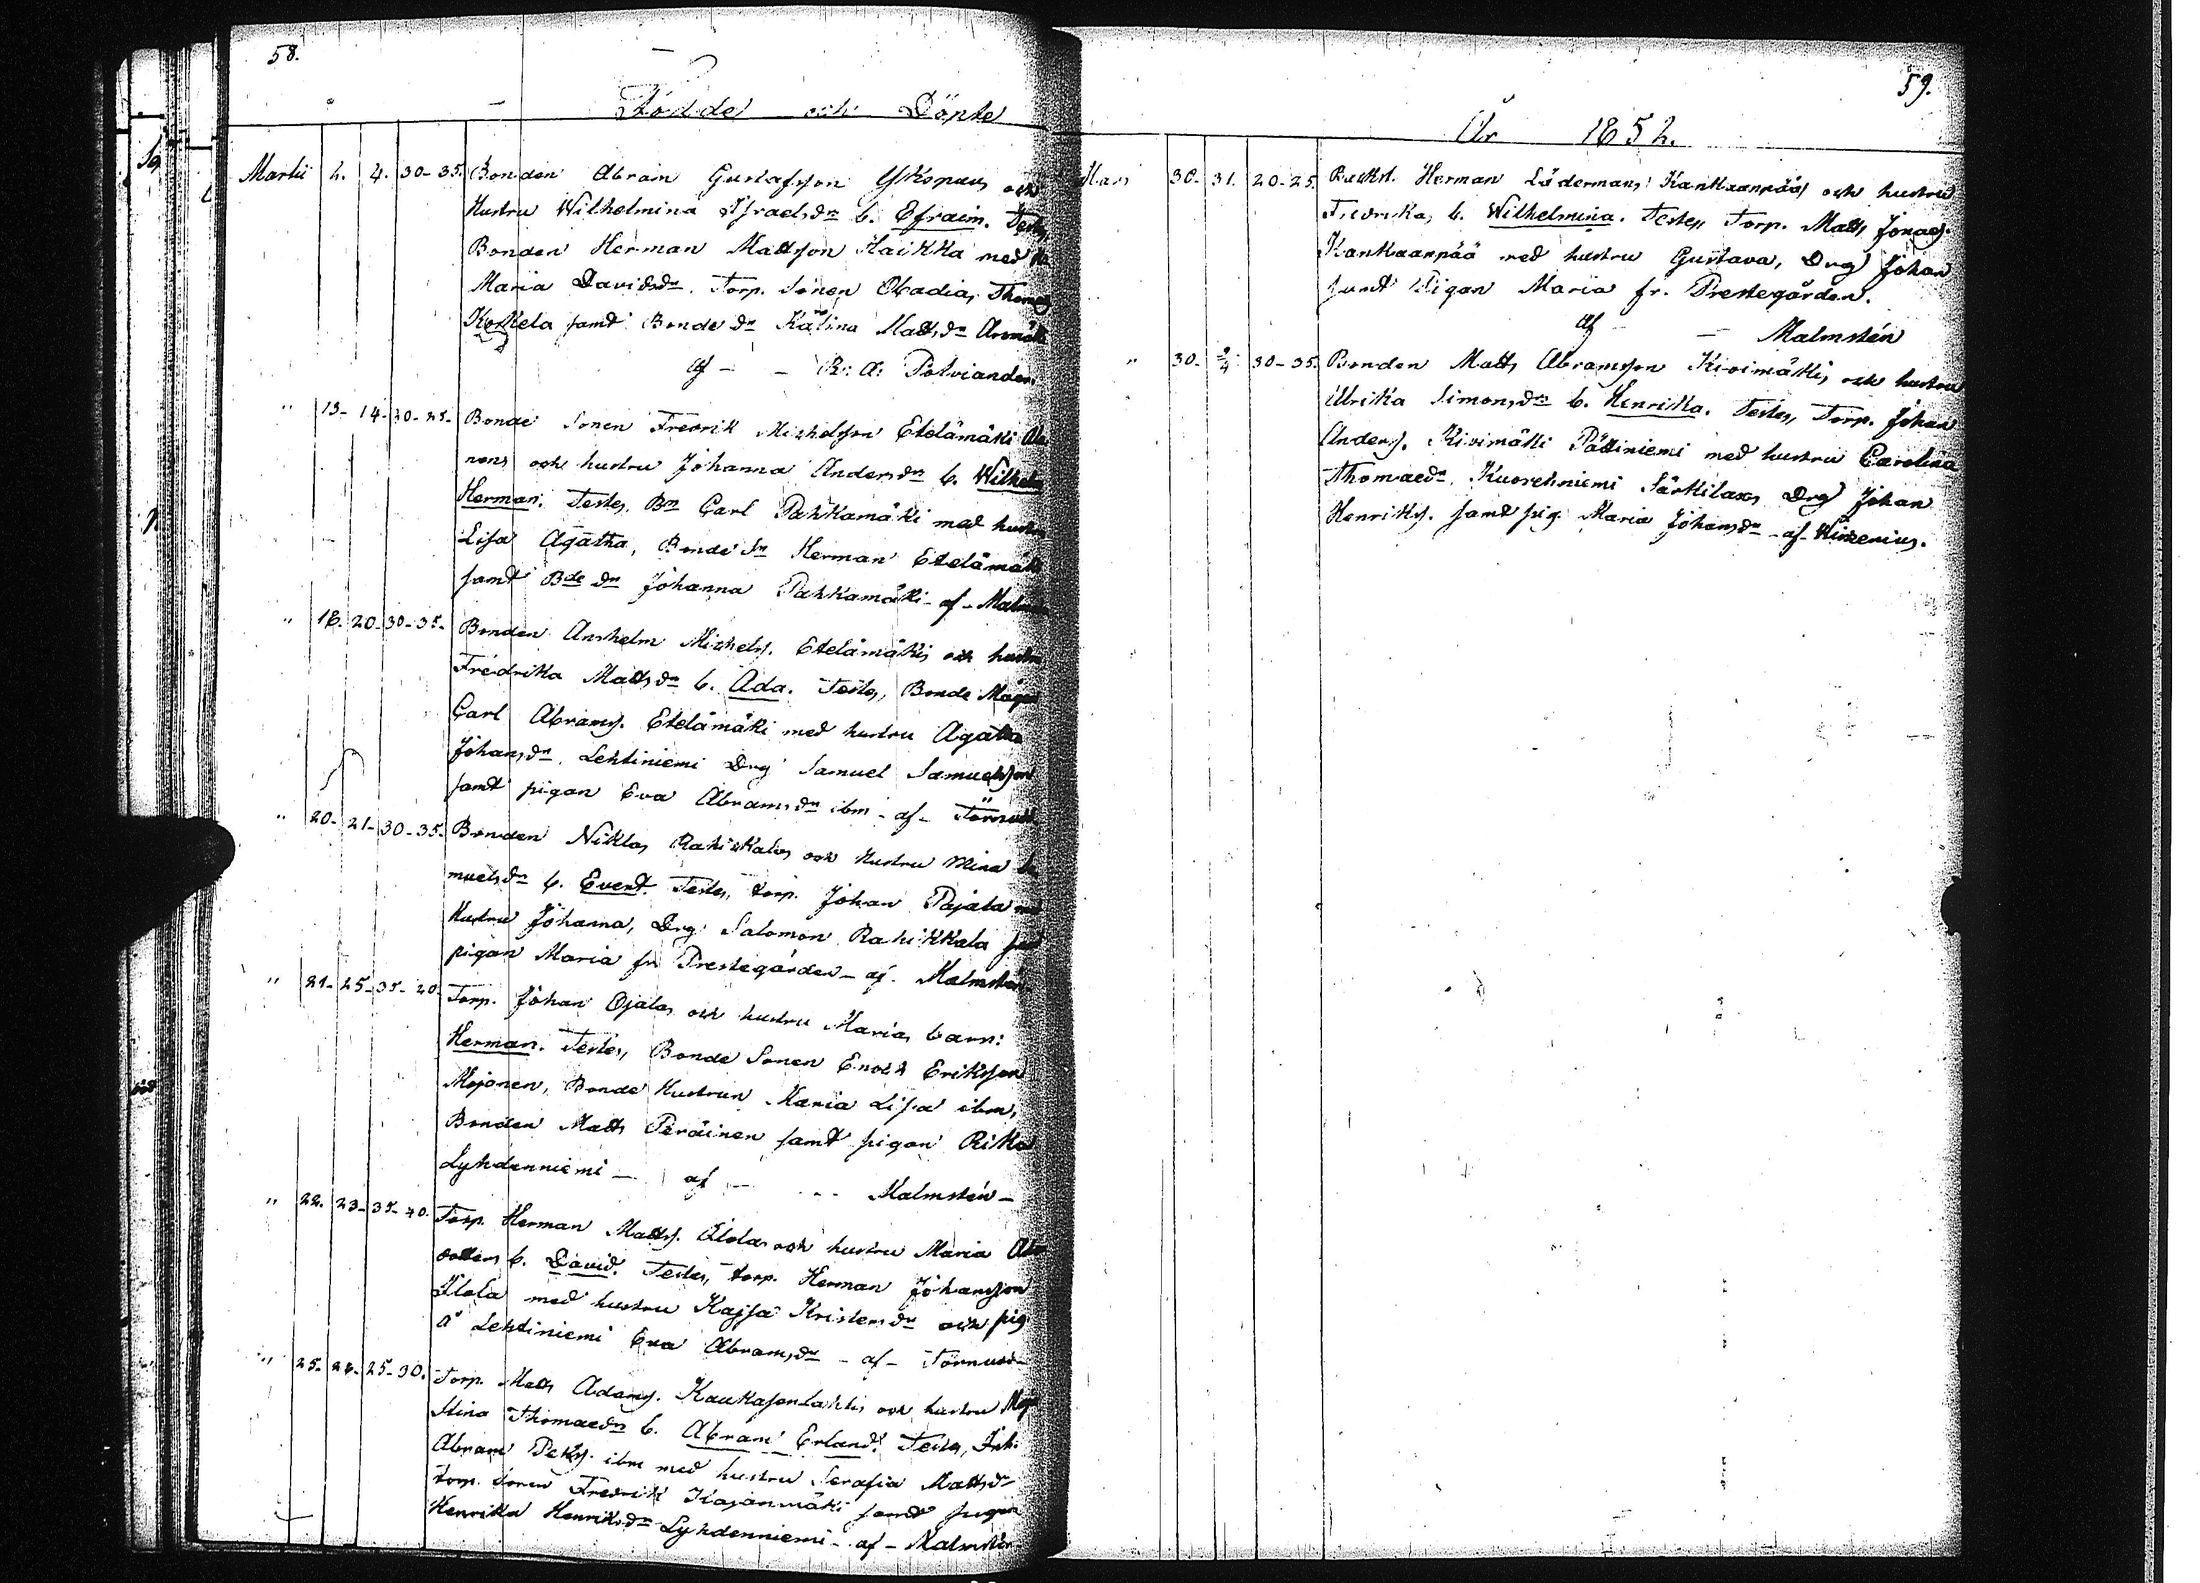 58.
Födde och Döpte
Martii 2. 4. 30-35. Bonden Abram Gustafsson Yskopaus och
Hustru Wilhelmina Israelsdr b. Efraim. Testes
Bonden Herman Mattsson Kaikka med
Maria Davidsdr. Torp. Sonen Obadias Thomas
Korkela samt Bonde dr Kälina Mattsdr
af - - R: A: Polviander
" 13-14-20-25. Bonde Sonen Fredrik Michelsson Etelämäki
nens och hustru Johanna Andersdr b. Wilhelm
Herman. Testes, Bn Carl Pahkamäki med hustru
Lisa Agatha, Bonde Sn Herman Etelämäki
samt Bde dr Johanna Pahkamäki - af - Malmstén
" 18-20-30-35. Bonden Anshelm Michels. Etelämäkis och hustru
Fredrika Mattsdr b. Ada. Testes, Bonde Mågen
Carl Abrams. Etelämäki med hustru Agatha
Johansdr. Lehtiniemi Drg Samuel Samuelsson
samt pigan Eva Abramsdr ibm - af - Törnudd
" 20-21-30-35. Bonden Niklas Rahikkalas och Hustru Mina Sa
muelsdr b. Evert. Testes, torp. Johan Pajala med
Hustru Johanna, Drg Salomon Rahikkala samt
pigan Maria fr Prestegården - af - Malmstén
" 21-25-35-40. Torp. Johan Ojalas och hustru Marias barn:
Herman. Testes, Bonde Sonen Enoch Eriksson
Mojonen, Bonde Hustrun Maria Lisa ibm,
Bonden Matts Peräinen samt pigan Rika
Lyhdenniemi - af - Malmstén -
" 22. 23-35-40. Torp. Herman Matts. Ilolas och hustru Maria
dotters b. David. Testes, torp. Herman Johansson
Ilola med hustru Kajsa Kristersdr och pig.
å Lehtiniemi Eva Abramsdr - af - Törnudd
" 25-26-25-30. Torp. Matts Adams. Kaukasonlahtis och hustru Maja
Stina Thomaedr b. Abram Erland. Testes, Inh.
Abram ibm med hustru Serafia Mattsdr
torp. Sonen Fredrik Kajanmäki samt pigan
Henrika Henriksdr Lyhdenniemi - af - Malmstén
59.
År 1852.
Mars 30. 31. 20-25. Backst. Herman Lädermans Kankaanpääs och hustru
Fredrikas b. Wilhelmina. Testes, Torp. Matts Jonas.
Kankaanpää med hustru Gustava, Drg Johan
samt Pigan Maria fr. Prestegården.
af - - Malmstén
" 30. 2/4 30-35. Bonden Matts Abramsson Kivimäkis och hustru
Ulrika Simonsdr b. Henrika. Testes, Torp. Johan
Anders. Kivimäki Pättiniemi med hustru Carolina
Thomaedr. Kuorehniemi Särkilax, Drg Johan
Henriks. samt pig. Maria Johansdr - af - Wirzenius.